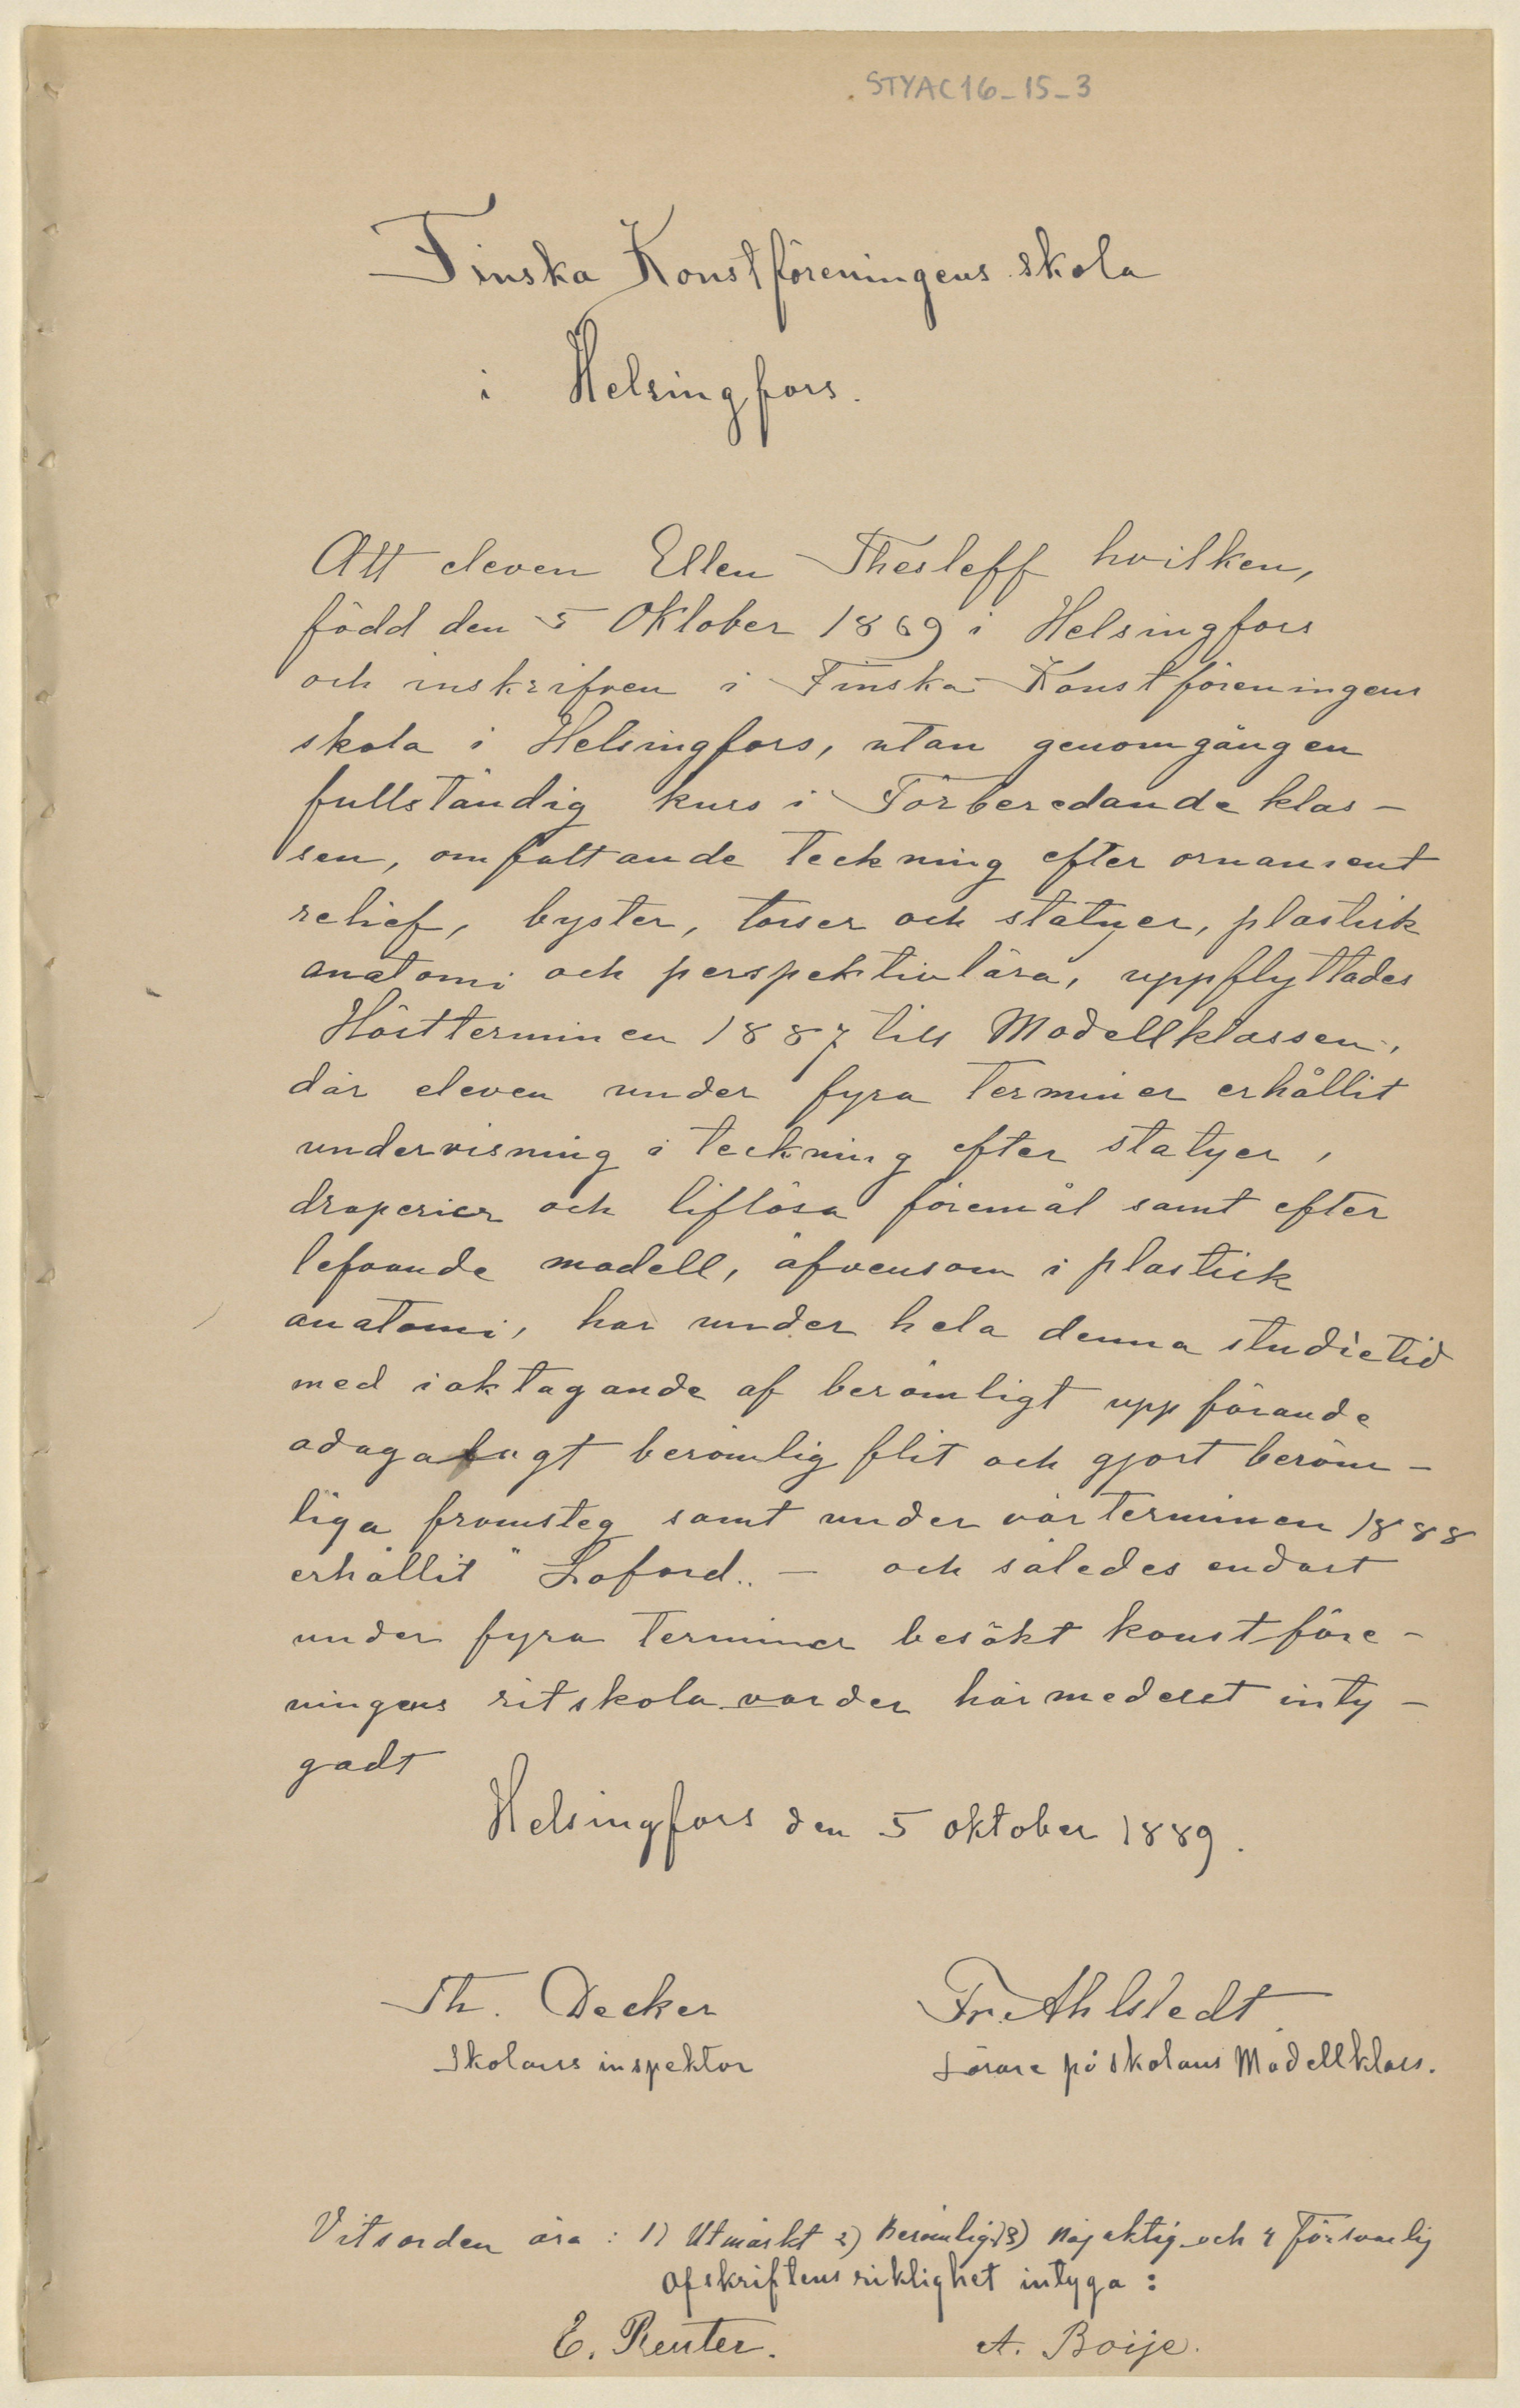 STYAC16_15_3
Finska Konstföreningens skola
i Helsingfors.
Att eleven Ellen Thesleff hvilken,
född den 5 Oktober 1869 i Helsingfors
och inskrifven i Finska Konstföreningens
skola i Helsingfors, utan genomgången
fullständig kurs i Förberedande klas-
sen, omfattande teckning efter ornament
relief, byster, torser och statyer, plastisk
anatomi och perspektivlära, uppflyttades
Höstterminen 1887 till Modellklassen,
där eleven under fyra terminer erhållit
undervisning i teckning efter statyer,
draperier och liflösa föremål samt efter
lefvande modell, äfvensom i plastisk
anatomi, har under hela denna studietid
med iakttagande af berömligt uppförande
ådagalagt berömlig flit och gjort beröm-
liga framsteg samt under vårterminen 1888
erhållit "Loford" - och således endast
under fyra terminer besökt konstföre-
ningens ritskola varder härmedelst inty-
gadt
Helsingfors den 5 oktober 1889.
Th. Decker
Fr. Ahlstedt
Skolans inspektor
Lärare på skolans Modellklass.
Vitsorden äro: 1) Utmärkt 2) Berömlig 3) Nöjaktig och 4 Försvarlig
Afskriftens riktighet intyga:
E. Reuter.
A. Boije.